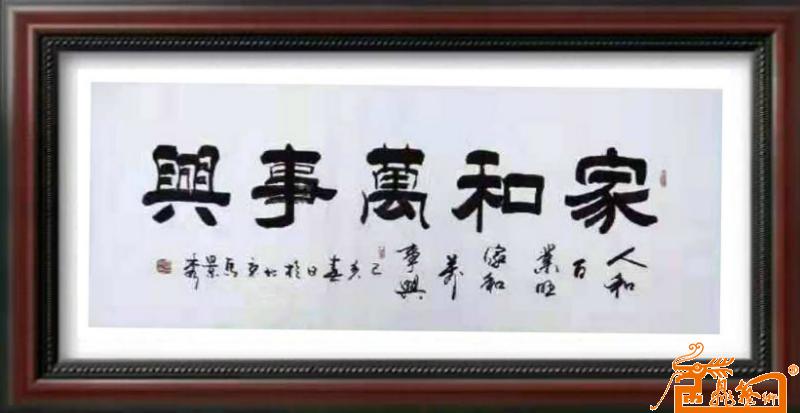 家和萬事興
人和
百
業旺
家和
萬
事興
己亥春日於北京馬景秀